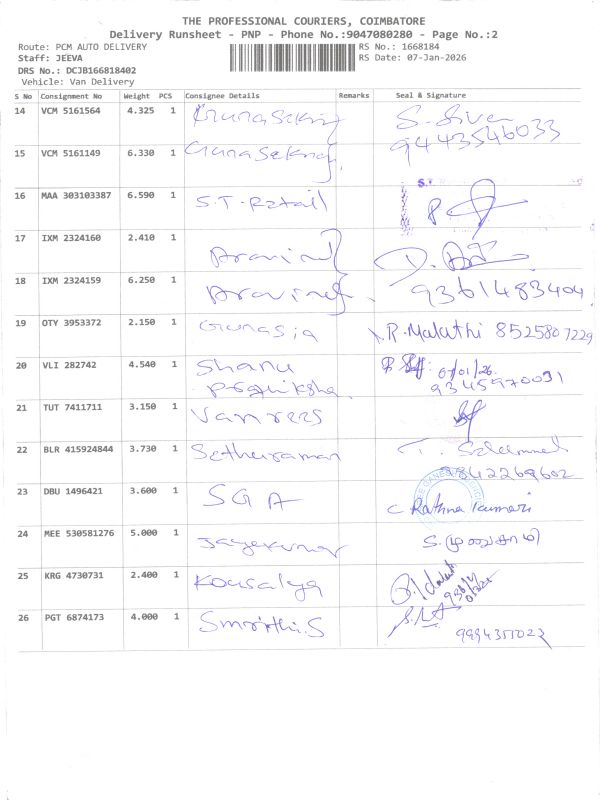 THE PROFESSIONAL COURIERS, COIMBATORE
Delivery Runsheet - PNP - Phone No.:9047080280 - Page No.:2
Route: PCM AUTO DELIVERY RS No.: 1668184
Staff: JEEVA RS Date: 07-Jan-2026
DRS No.: DCJB166818402
Vehicle: Van Delivery
S No Consignment No Weight PCS Consignee Details Remarks Seal & Signature
14 VCM 5161564 4.325 1 S. Siva
9443546033
15 VCM 5161149 6.330 1
16 MAA 303103387 6.590 1 S.T. Retail
17 IXM 2324160 2.410 1 Aravind
18 IXM 2324159 6.250 1 Aravind 9361483404
19 OTY 3953372 2.150 1 R. Malathi 8525807229
20 VLI 282742 4.540 1 Shanu 07/01/26
9345970031
21 TUT 7411711 3.150 1 Vanrees
22 BLR 415924844 3.730 1 Sethuraman
9842269602
23 DBU 1496421 3.600 1 SGA C Rathna Kumari
24 MEE 530581276 5.000 1 Jayakumar
25 KRG 4730731 2.400 1 Kousalya
26 PGT 6874173 4.000 1 Smrithi.S